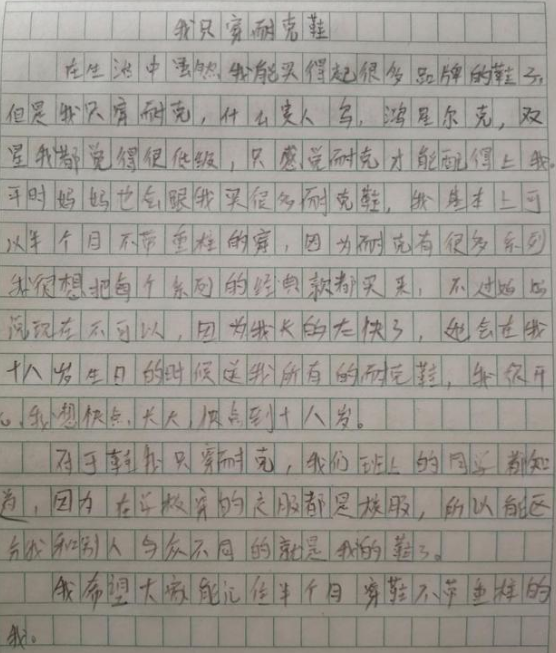 我只穿耐克鞋
在生活中虽然我能买得起很多品牌的鞋子,
但是我只穿耐克,什么贵人鸟,鸿星尔克,双
星我都觉得很低级,只感觉耐克才能配得上我。
平时妈妈也会跟我买很多耐克鞋,我基本上可
以半个月不带重样的穿,因为耐克有很多系列
我很想把每个系列的经典款都买来,不过妈妈
说现在不可以,因为我长的太快了,她会在我
十八岁生日的时候送我所有的耐克鞋,我很开
心,我想快点长大,快点到十八岁。
对于鞋我只穿耐克,我们班上的同学都知
道,因为在学校穿的衣服都是校服,所以能区
分我和别人与众不同的就是我的鞋子。
我希望大家能记住半个月穿鞋不带重样的
我。